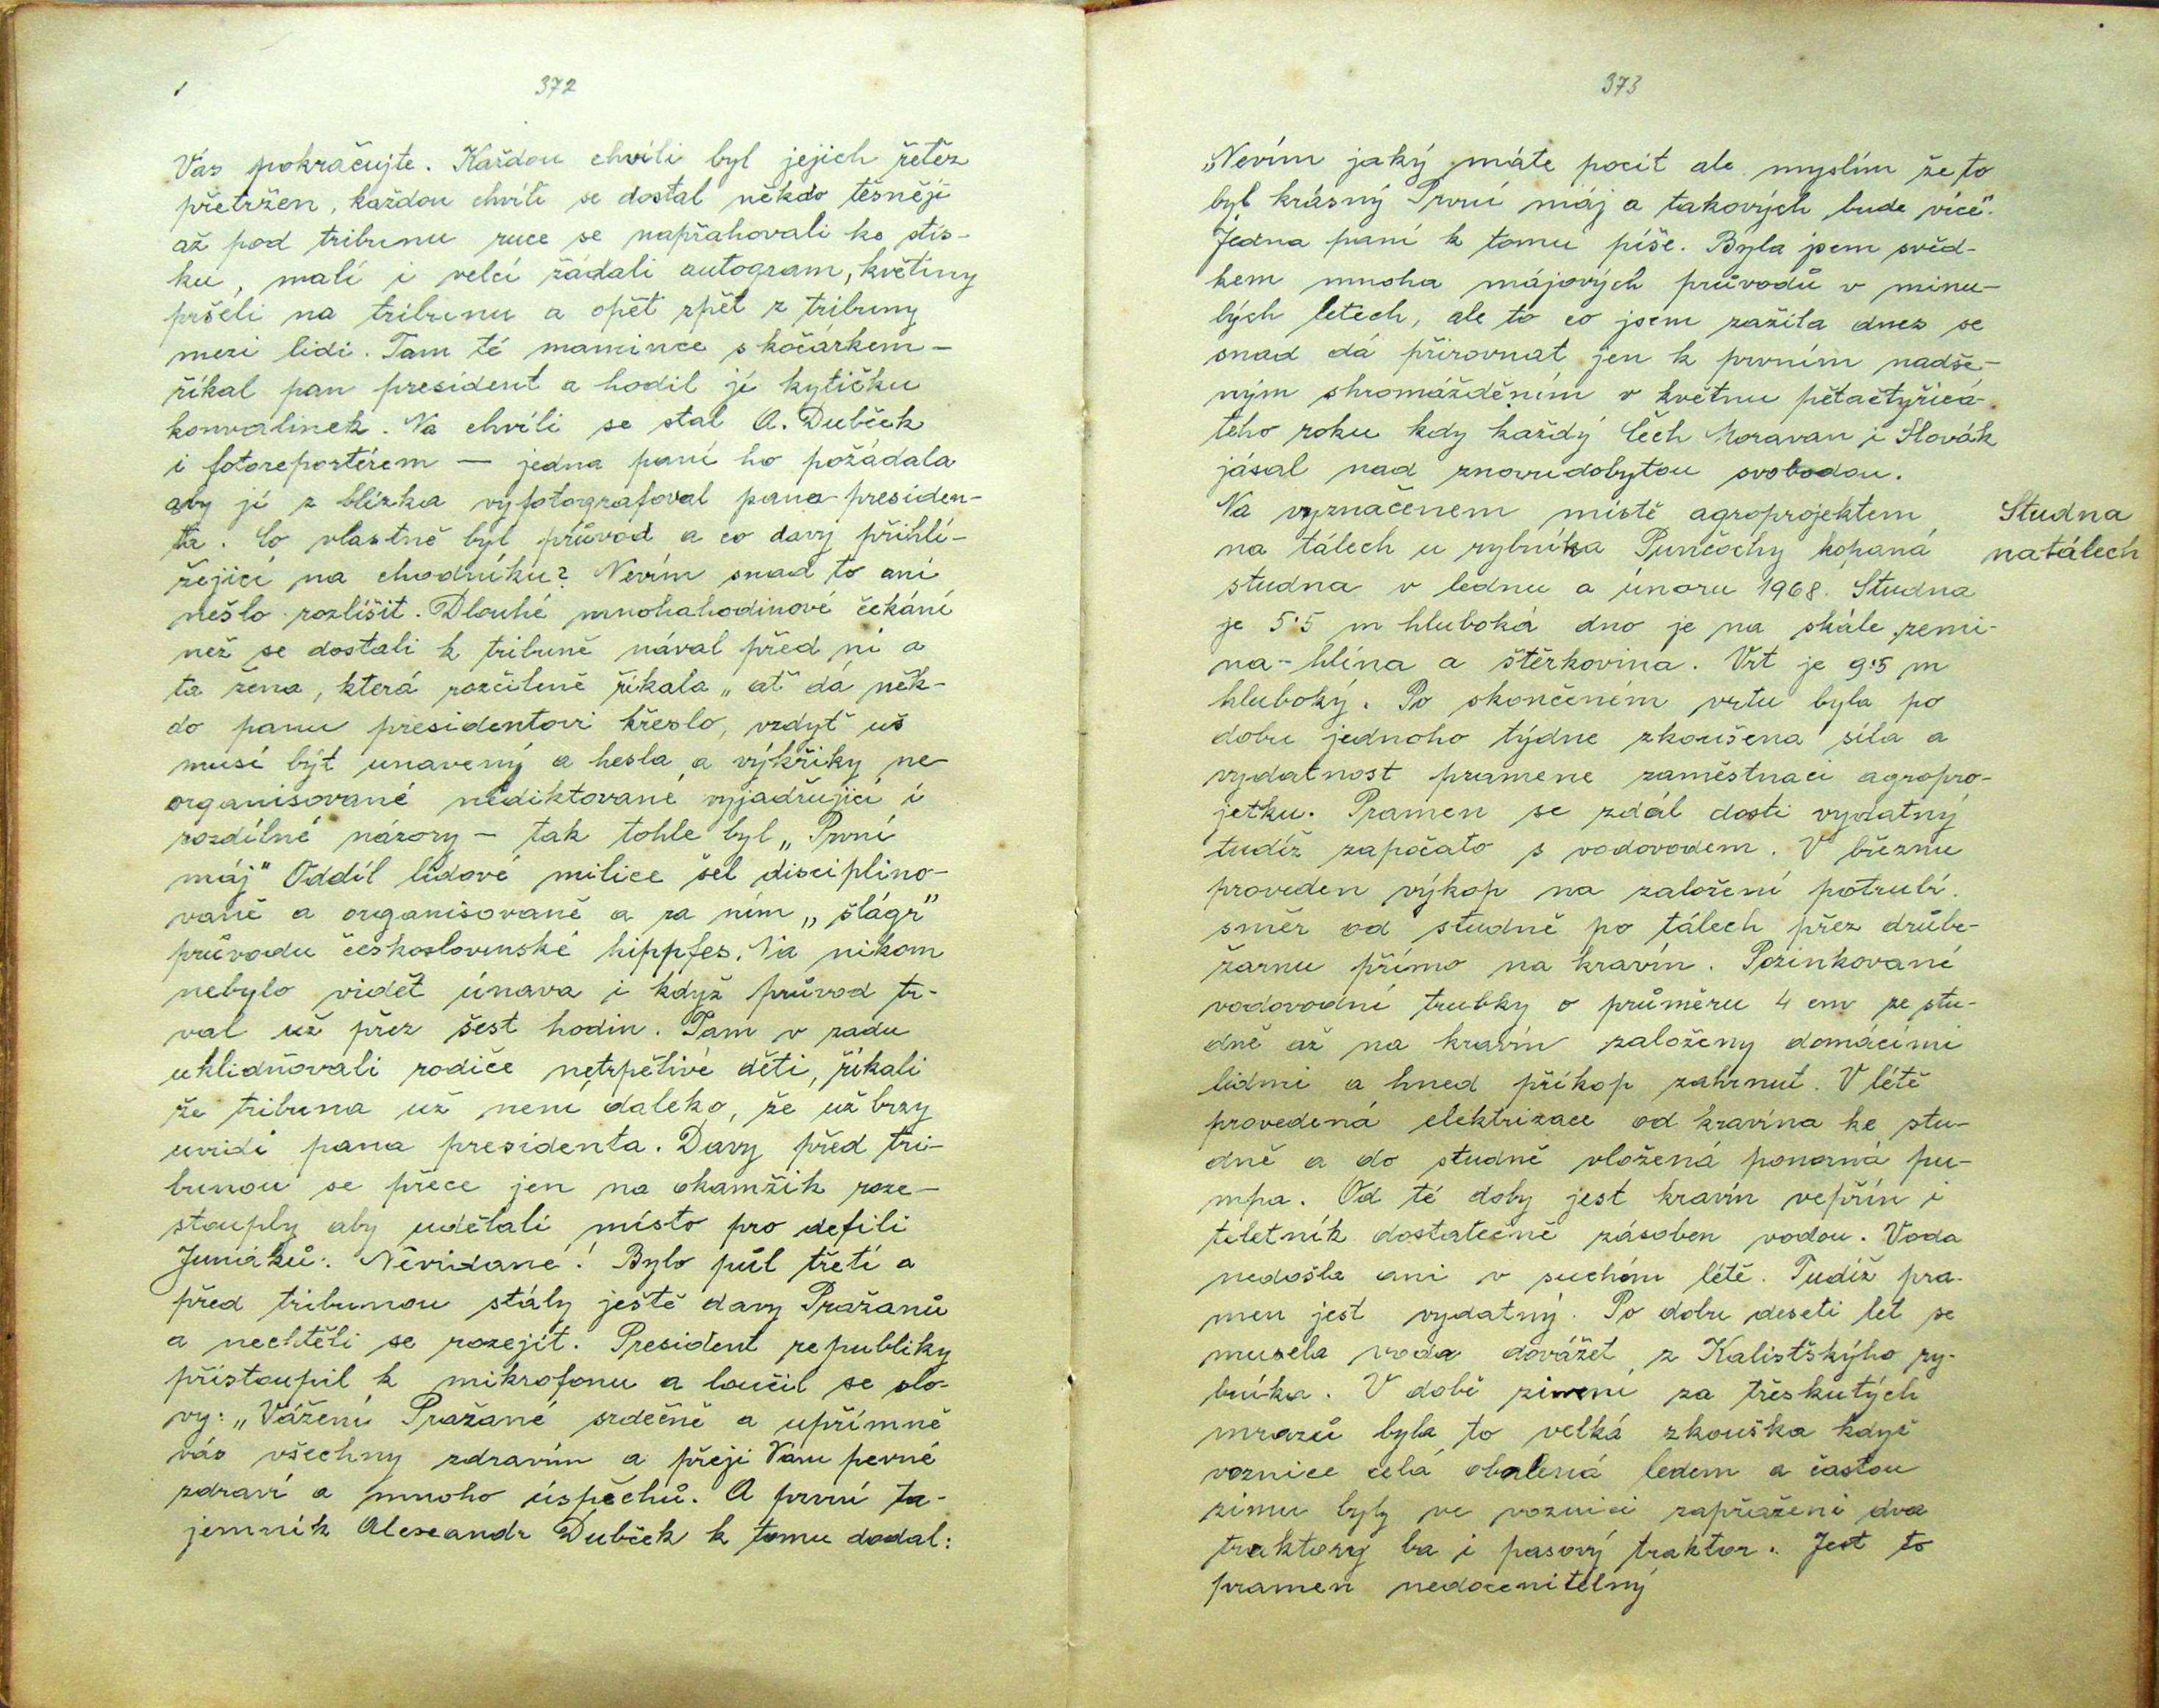 372
Vás pokračujte. Každou chvíli byl jejich řetěz
přetržen, každou chvíli se dostal někdo těsněji
až pod tribunu ruce se napřahovali ke stis-
ku, malí i velcí žádali autogram, květiny
pršeli na tribunu a opět zpět z tribuny
mezi lidi. Tam té mamince s kočárkem -
říkal pan president a hodil jí kytičku
konvalinek. Na chvíli se stal A. Dubček
i fotoreportérem — jedna paní ho požádala
aby jí z blízka vyfotografoval pana presiden-
ta. Co vlastně byl průvod a co davy přihlí-
žející na chodníku? Nevím snad to ani
nešlo rozlišit. Dlouhé mnohahodinové čekání
než se dostali k tribuně nával před ní a
ta žena, která rozčileně říkala „ať dá něk-
do panu presidentovi křeslo, vzdyť už
musí být unavený a hesla a výkřiky ne-
organisované nediktované vyjadřující i
rozdílné názory - tak tohle byl „První
máj" Oddíl lidové milice šel disciplino-
vaně a organisovaně a za ním „šlágr"
průvodu československé hippies. Na nikom
nebylo vidět únava i když průvod tr-
val už přez šest hodin. Tam v zadu
uklidňovali rodiče netrpělivé děti, říkali
že tribuna už není daleko, že už brzy
uvidí pana presidenta. Davy před tri-
bunou se přece jen na okamžik roze-
stouply aby udělali místo pro defilé
Junáků. Nevídané! Bylo půl třetí a
před tribunou stály ještě davy Pražanů
a nechtěli se rozejít. President republiky
přistoupil k mikrofonu a loučil se slo-
vy: „Vážení Pražané srdečně a upřímně
vás všechny zdravím a přeji Vám pevné
zdraví a mnoho úspěchů. A první ta-
jemník Alexandr Dubček k tomu dodal:
373
„Nevím jaký máte pocit ale myslím že to
byl krásný První máj a takových bude více".
Jedna paní k tomu píše. Byla jsem svěd-
kem mnoha májových průvodů v minu-
lých letech, ale to co jsem zažila dnes se
snad dá přirovnat jen k prvním nadše-
ným shromážděním v květnu pětačtyřicá-
tého roku kdy každý Čech Moravan i Slovák
jásal nad znovudobytou svobodou.
Na vyznačenem místě agroprojektem
na tálech u rybníka Punčochy kopaná
studna v lednu a únoru 1968. Studna
je 5·5 m hluboká dno je na skále zemi-
na - hlína a štěrkovina. Vrt je 9·5 m
hluboký. Po skončeném vrtu byla po
dobu jednoho týdne zkoušena síla a
vydatnost pramene zaměstnaci agropro-
jetku. Pramen se zdál dosti vydatný
tudíž započato s vodovodem. V březnu
proveden výkop na založení potrubí.
směr od studně po tálech přez drůbe-
žárnu přímo na kravín. Pozinkované
vodovodní trubky o průměru 4 cm ze stu-
dně až na kravín založeny domácími
lidmi a hned příkop zahrnut. V létě
provedená elektrizace od kravína ke stu-
dně a do studně vložená ponorná pu-
mpa. Od té doby jest kravín vepřín i
teletník dostatečně zásoben vodou. Voda
nedošla ani v suchém létě. Tudíž pra-
men jest vydatný. Po dobu deseti let se
musela voda dovážet z Kalistškýho ry-
bníka. V době zimení za třeskutých
mrazů byla to velká zkouška když
voznice celá obalená ledem a častou
zimu byly ve voznici zapřaženi dva
traktory ba i pasový traktor. Jest to
pramen nedocenitelný
Studna
na tálech